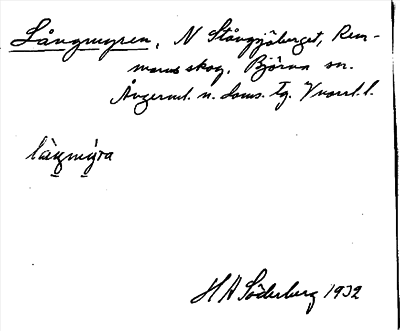 Långmyren, N Stångsjöberget, Rem-
mars skog, Björna sn.
Ångerml. n. doms. tg. Vnorrl. l.
låŋmýra
H A Söderberg 1932